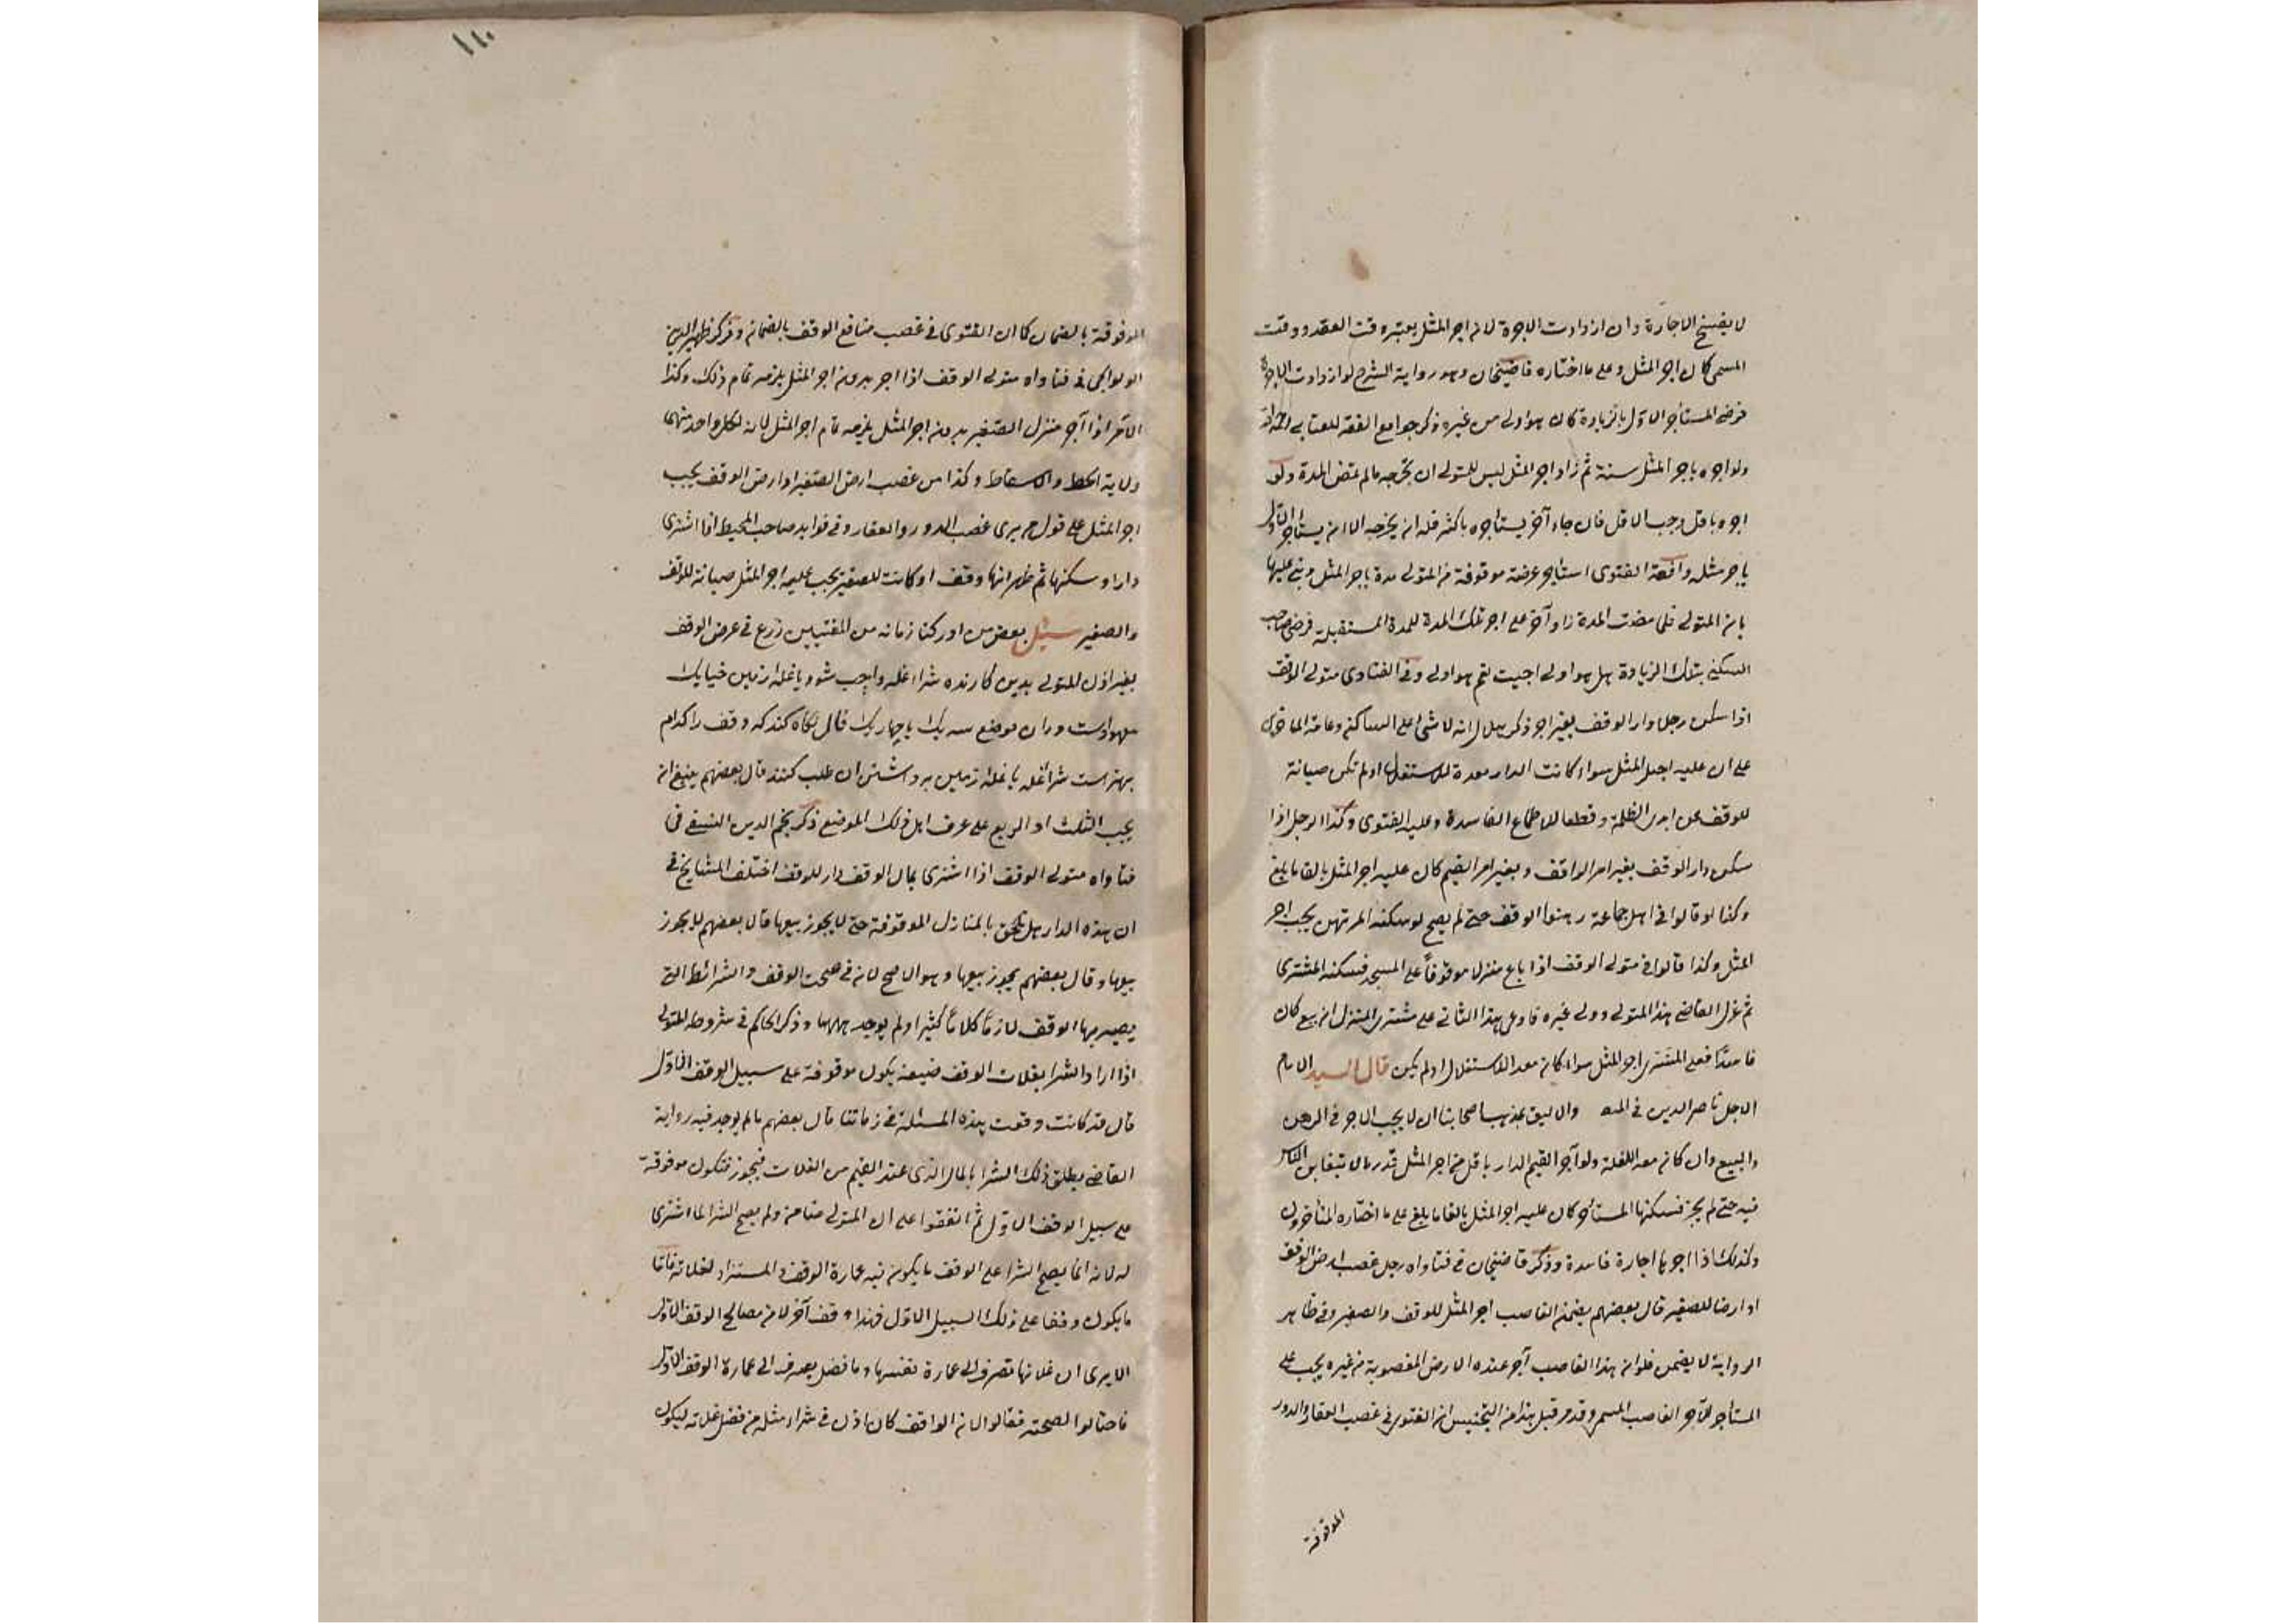 لا يفسخ الاجارة وان ازدادت الاجرة لان اجر المثل يعتبر وقت العقد ووقت
المسمى كان اجر المثل وعلى ما اختاره قاضيخان وهو رواية الشرح لو ازدادت الاجرة
فرضى المستأجر الاوّل بالزيادة كان هو اولى من غيره ذكر جوامع الفقه للعتابى رحمه الله
ولو اجره باجر المثل سنة ثم زاد اجر المثل ليس للمتولى ان يخرجه مالم تمض المدة ولو
اجره باقل وجب الاقل فان جاء آخر يستاجره باكثر فله ان يخرجه الا ان يستاجر الاول
باجر مثله واقعة الفتوى استاجر عرصة موقوفة من المتولى مدة باجر المثل وبنى عليها
باذن المتولى فلما مضت المدة زاد آخر على اجر تلك المدة للمدة المستقبلة فرضى صاحب
السكنى بتلك الزيادة هل هو اولى اجيب نعم هو اولى وفى الفتاوى متولى الوقف
اذا سكن رجل دار الوقف بغير اجر ذكر هلال انه لا شئ على الساكن وعامة المتاخرين
على ان عليه اجر المثل سواء كانت الدار معدة للاستغلال او لم تكن صيانة
للوقف عن ايدى الظلمة وقطعا للاطماع الفاسدة وعليه الفتوى وكذا الرجل اذا
سكن دار الوقف بغير امر الواقف وبغير امر القيم كان عليه اجر المثل بالغا ما بلغ
وكذا لو قالوا فى اهل جماعة رهنوا الوقف حتى لم يصح لو سكنه المرتهن يجب اجر
المثل وكذا قالوا فى متولى الوقف اذا باع منزلا موقوفاً على المسجد فسكنه المشترى
ثم عزل القاضى هذا المتولى وولى غيره فادعى هذا الثانى على مشترى المنزل ان بيع كان
فاسدًا فعلى المشترى اجر المثل سواء كان معدا للاستغلال او لم يكن قال السيد الامام
الاجل ناصر الدين فى والاليق بمذهب اصحابنا ان لا يجب الاجر فى الرهن
والبيع وان كان معد اللغلة ولو آجر القيم الدار باقل من اجر المثل قدر مالا يتغابن الناس
فيه حتى لم يجز فسكنها المستأجر كان عليه اجر المثل بالغا ما بلغ على ما اختاره المتأخرون
وكذلك اذا اجرها اجارة فاسدة وذكر قاضيخان فى فتاواه رجل غصب ارض الوقف
او ارضا للصغير قال بعضهم يضمن الغاصب اجر المثل للوقف والصغير وفى ظاهر
الرواية لا يضمن فلو ان هذا الغاصب آجر عنده الارض المغصوبة من غيره يجب على
المستاجر للآجر الغاصب المسمى وقد مر قبل هذا من التجنيس ان الفتوى فى غصب العقار والدور
الموقوفة
١١٠
الموقوفة بالضمان كما ان الفتوى فى غصب منافع الوقف بالضمان وذكر ظهير الدين
الولوالجى فى فتاواه متولى الوقف اذا اجر بدون اجر المثل يلزمه تمام ذلك وكذا
اذا آجر منزل الصغير بدون اجر المثل يلزمه تمام اجر المثل لان لكل واحد منهما
ولاية الحط والاسقاط وكذا من غصب ارض الصغير او ارض الوقف يجب
اجر المثل على قول من يرى غصب الدور والعقار وفى فوايد صاحب المحيط اذا اشترى
دارا وسكنها ثم ظهر انها وقف او كانت للصغير يجب عليه اجر المثل صيانة للوقف
والصغير سئل بعض من ادركنا زمانه من المفتيين زرع فى عرض الوقف
بغير اذن للمتولى بدين كارنده شراء غله واجب شود يا غله زمين خيابك
معهودست ودران موضع سه يك يا چهاريك قال نگاه كند كه وقف را كدام
بهترست شراء غله يا غله زمين برداشتن ان طلب كنند قال بعضهم ينبغى ان
يجب الثلث او الربع على عرف اهل ذلك الموضع ذكر نجم الدين النسفى فى
فتاواه متولى الوقف اذا اشترى بمال الوقف دار للوقف اختلف المشايخ فى
ان هذه الدار هل تلحق بالمنازل الموقوفة حتى لا يجوز بيعها قال بعضهم لا يجوز
بيعها وقال بعضهم يجوز بيعها وهو الاصح لان فى صحت الوقف والشرائط التى
يصير بها الوقف لازماً كلاماً كثيرا ولم يوجد ههنا وذكر الحاكم فى شروطه المتولى
اذا اراد الشرا بغلات الوقف ضيعة يكون موقوفة على سبيل الوقف الاوّل
قال قد كانت وقعت هذه المسئلة فى زماننا قال بعضهم مالم يوجد فيه رواية
القاضى يطلق ذلك الشرا بالمال الذى عند القيم من الغلات فيجوز فتكون موقوفة
على سبيل الوقف الاوّل ثم اتفقوا على ان المتولى ضامن ولم يصح الشرا لما اشترى
له لانه انما يصح الشرا على الوقف ما يكون فيه عمارة الوقف والمستزاد لغلاته فاما
ما يكون وقفا على ذلك السبيل الاوّل فهذا وقف آخر لا من مصالح الوقف الاوّل
الا يرى ان غلاتها تصرف الى عمارة نفسها وما فضل يصرف الى عمارة الوقف الاوّل
فاحتالوا لصحته فقالوا ان الواقف كان اذن فى شراء مثله من فضل غلاته ليكون